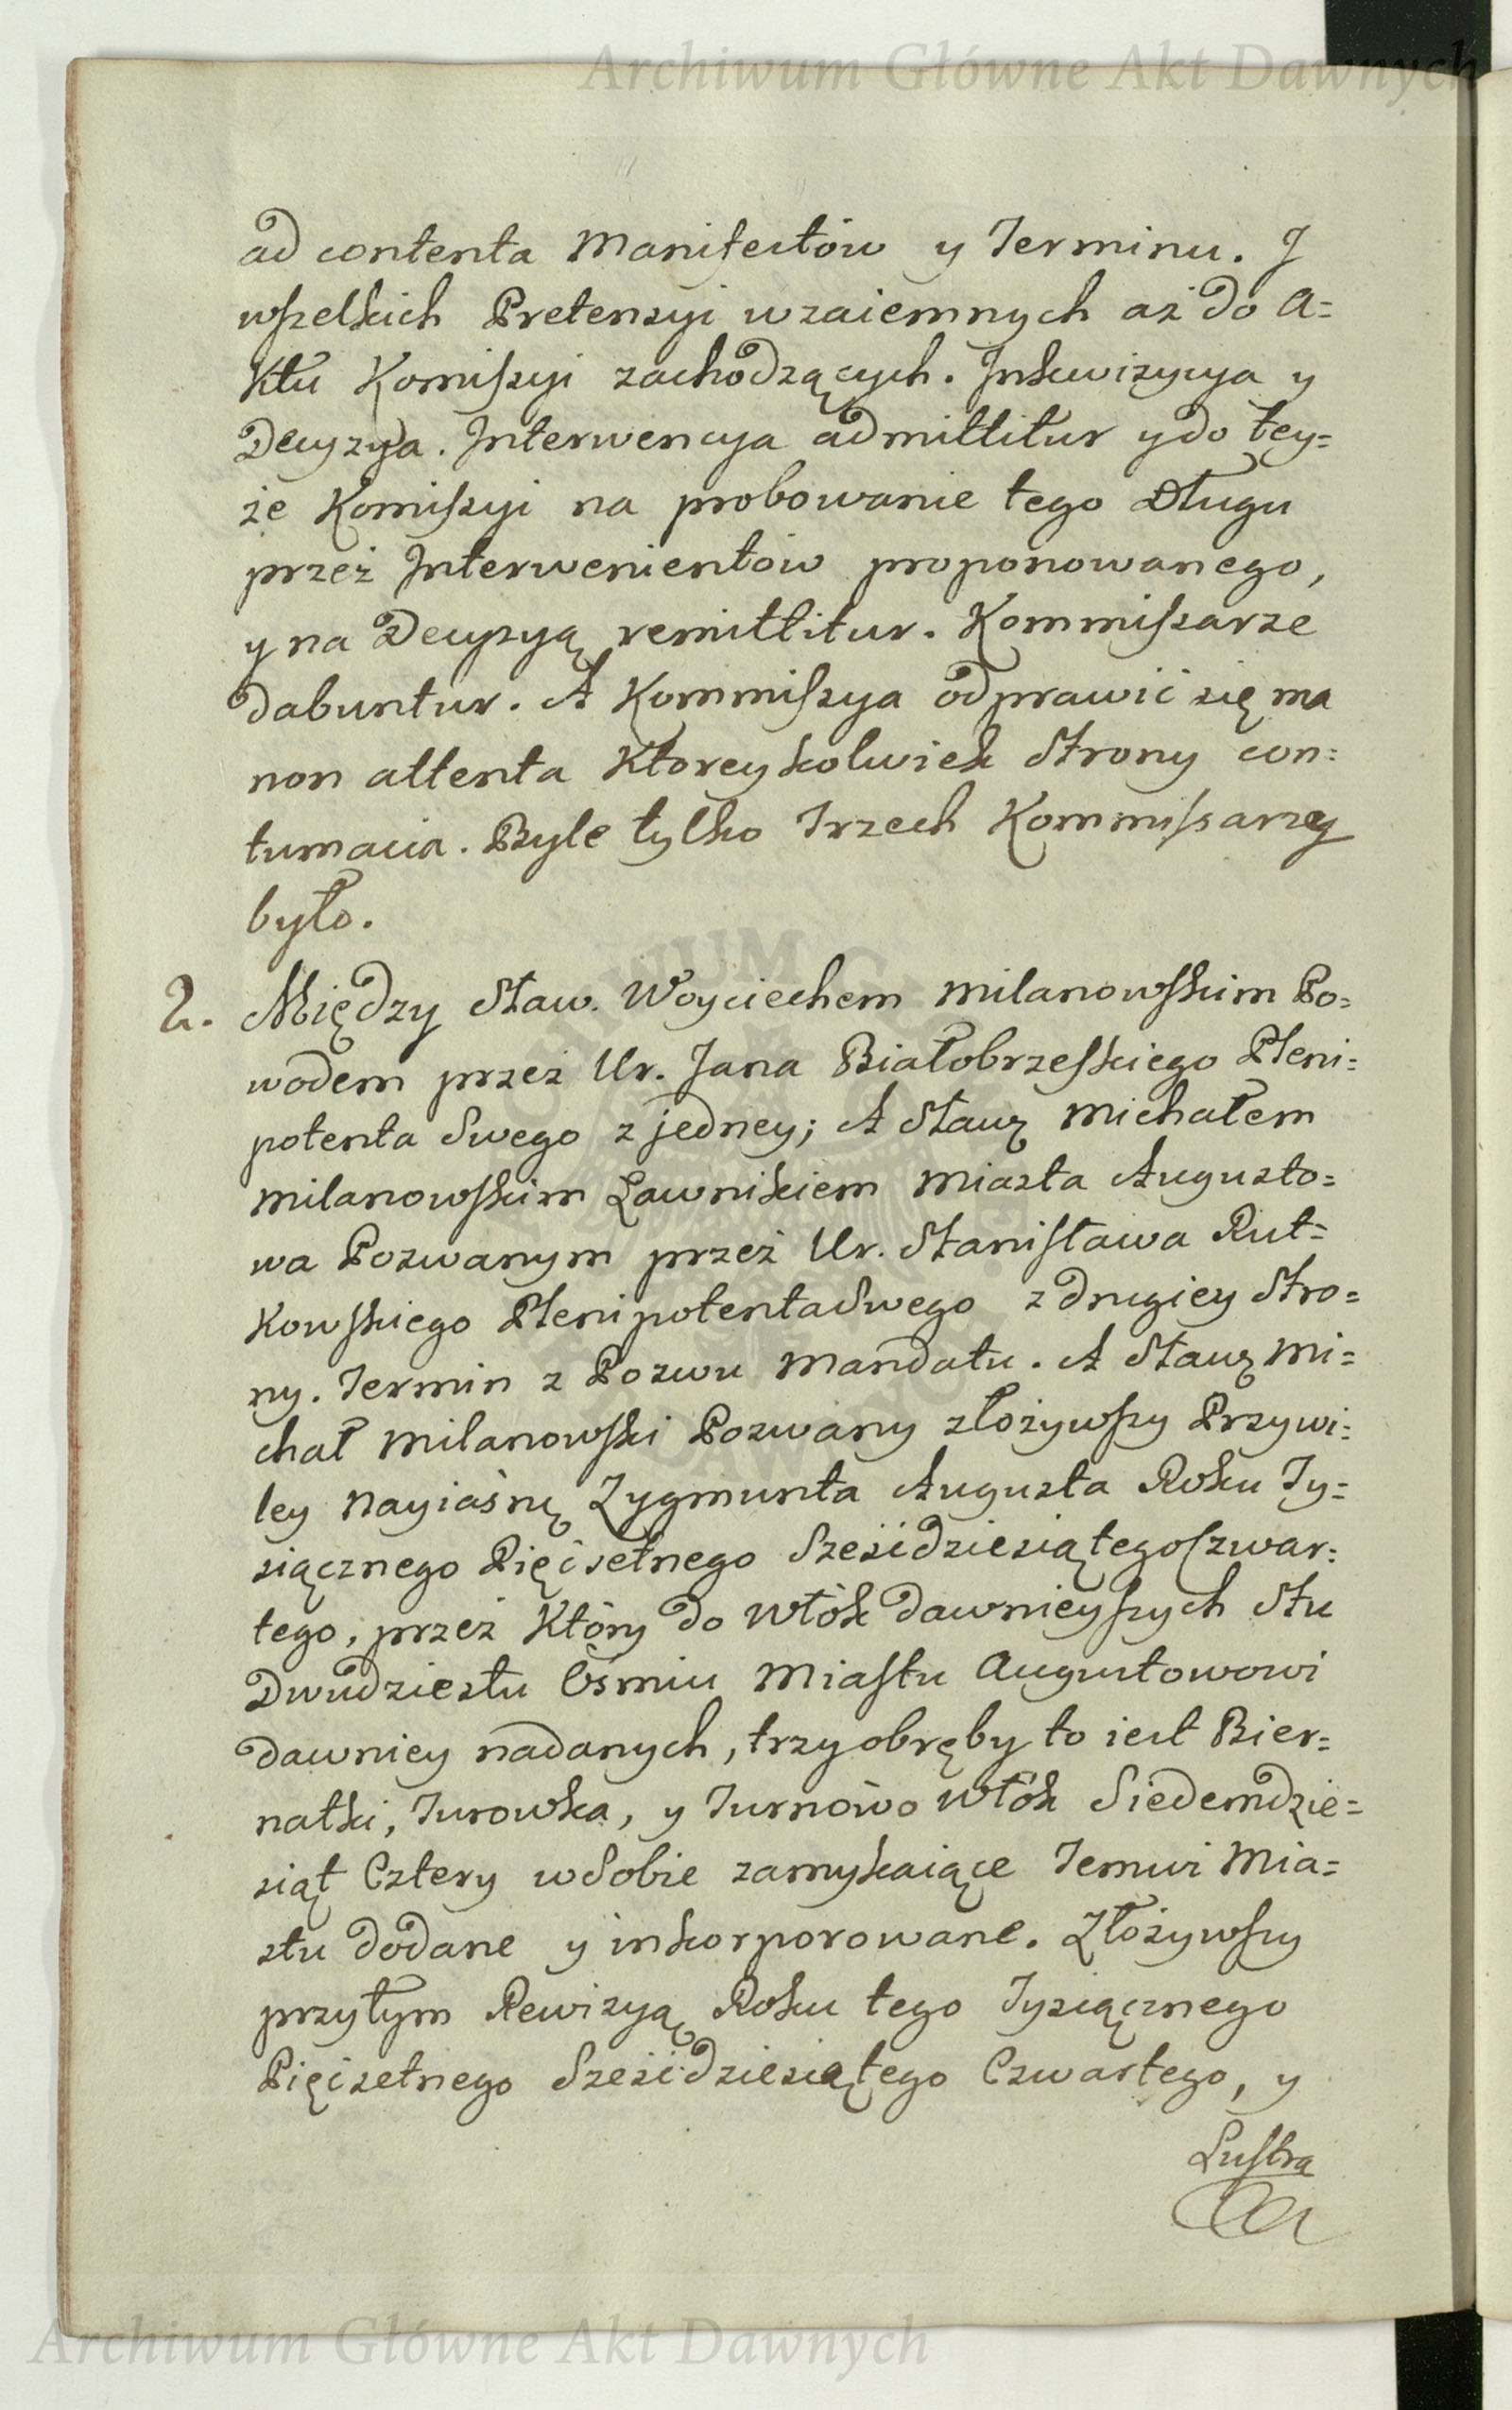 Archiwum Główne Akt Dawnych
ad contenta Manifestów y Terminu. J
wszelkich Pretensyi wzaiemnych aż do A=
ktu Komiszyi zachodzących. Inkwizycya y
Decyzya. Interwencya admittitur y do tey=
że Komiszyi na probowanie tego Długu
przez Interwenientów proponowanego,
y na Decyzyą remittitur. Kommiszarze
dabuntur. A Kommiszya odprawić się ma
non attenta ktoreykolwiek Strony con=
tumacia. Byle tylko Trzech Kommissarzy
było.
2. Między Staw. Woyciechem Milanowskim Po=
wodem przez Ur. Jana Białobrzeskiego Pleni=
potenta Swego z jedney; A Stawą Michałem
Milanowskim Ławnikiem Miasta Augusto=
wa Pozwanym przez Ur. Stanisława Rut=
kowskiego Plenipotenta Swego z drugiey Stro=
ny. Termin z Pozwu Mandatu. A Stawą Mi=
chał Milanowski Pozwany złożywszy Przywi=
ley Nayiaśnę Zygmunta Augusta Roku Ty=
siącznego Pięćsetnego Sześćdziesiątego Czwar=
tego, przez który do Włók dawnieyszych Stu
Dwudziestu Ośmiu Miastu Augustowowi
dawniey nadanych, trzy obręby to iest Bier=
natki, Turowka, y Turnowo Włók Siedemdzie=
siąt Cztery w Sobie zamykaiące Temuż Mia=
stu dodane y inkorporowane. Złożywszy
przytym Rewizyą Roku tego Tysiącznego
Pięćsetnego Sześćdziesiątego Czwartego, y
Lustra
Archiwum Główne Akt Dawnych